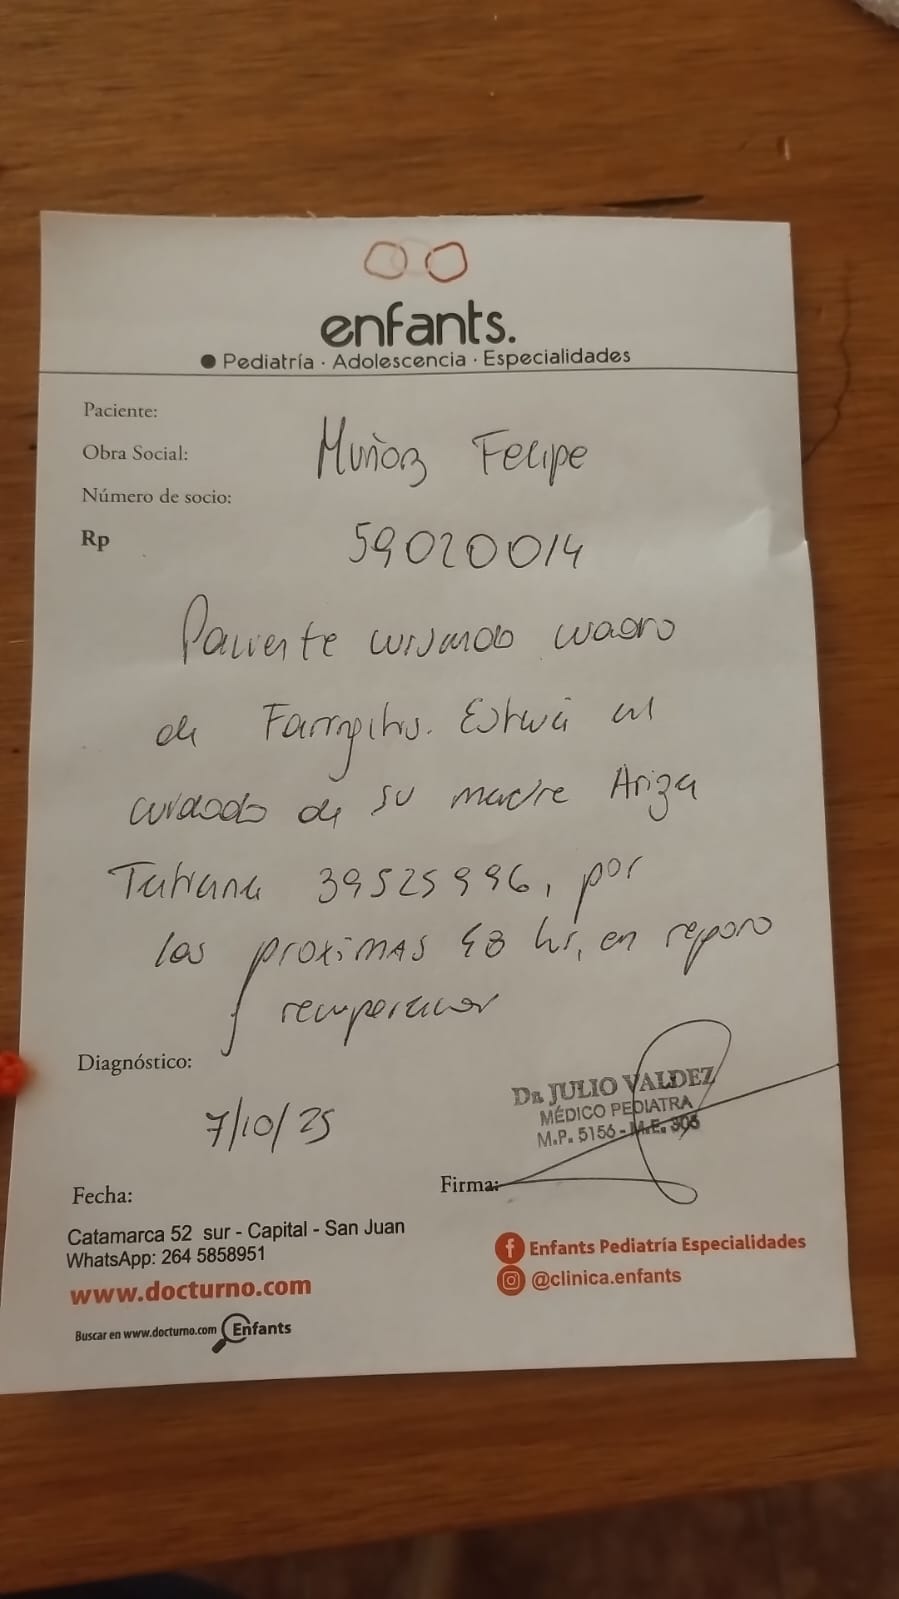 enfants.
Pediatría · Adolescencia · Especialidades
Paciente:
Obra Social:
Muñoz Felipe
Número de socio:
Rp
59020014
Paciente cursando cuadro
de Faringitis. Estará al
cuidado de su madre Ariza
Tatiana 39525996, por
las proximas 48 hr, en reposo
y recuperacion
Diagnóstico:
DR. JULIO VALDEZ
MÉDICO PEDIATRA
M.P. 5156 - M.E. 306
7/10/25
Fecha:
Firma:
Catamarca 52 sur - Capital - San Juan
WhatsApp: 264 5858951
www.docturno.com
Buscar en www.docturno.com Enfants
Enfants Pediatría Especialidades
@clinica.enfants